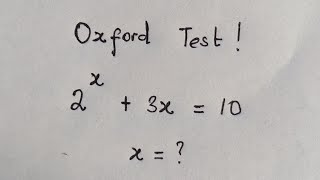 Oxford Test!
2^x + 3x = 10
x = ?